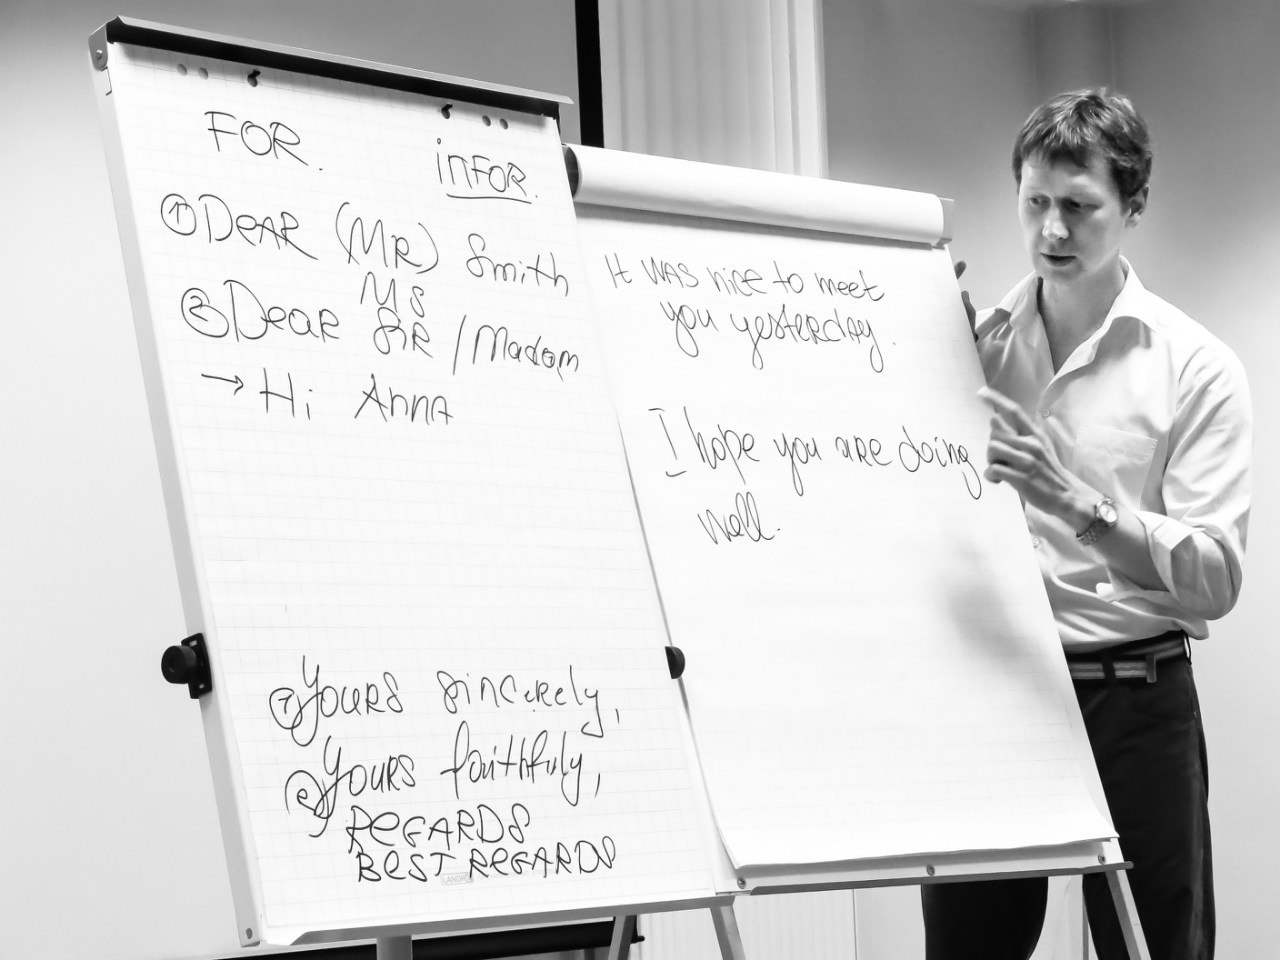 FOR.
INFOR.
① Dear (Mr) Smith
Ms
② Dear Sir / Madam
→ Hi Anna
① Yours sincerely,
② Yours faithfuly,
REGARDS
BEST REGARDS
It was nice to meet
you yesterday.
I hope you are doing
well.